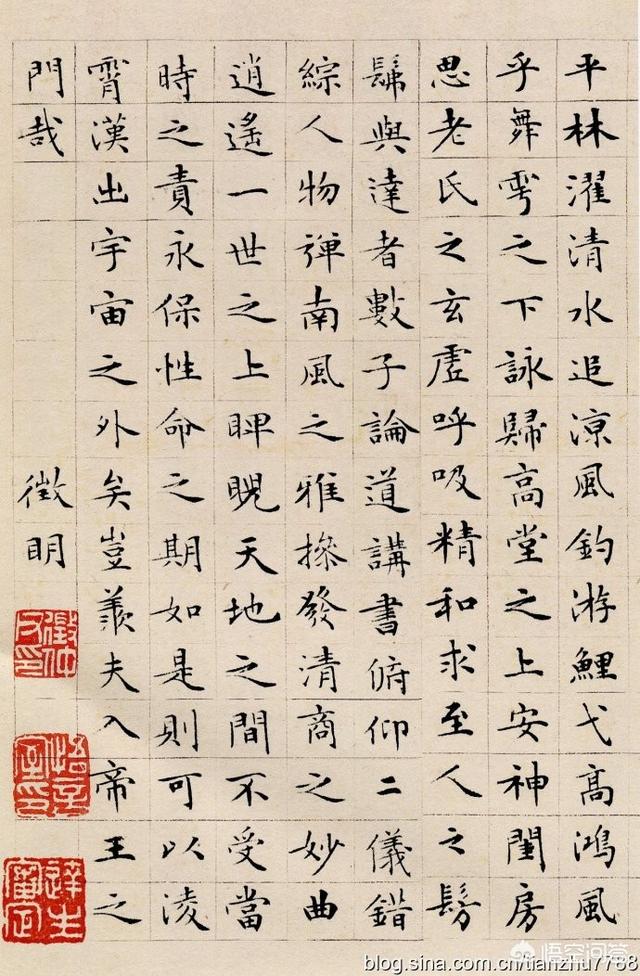 平林濯清水追涼風釣游鯉弋高鴻風
乎舞雩之下詠歸高堂之上安神閨房
思老氏之玄虛呼吸精和求至人之髣
髴與達者數子論道講書俯仰二儀錯
綜人物彈南風之雅操發清商之妙曲
逍遙一世之上睥睨天地之間不受當
時之責永保性命之期如是則可以淩
霄漢出宇宙之外矣豈羨夫入帝王之
門哉
徵明
徵仲父印
悟言室印
悟空问答
blog.sina.com.cn/tianzhu7788